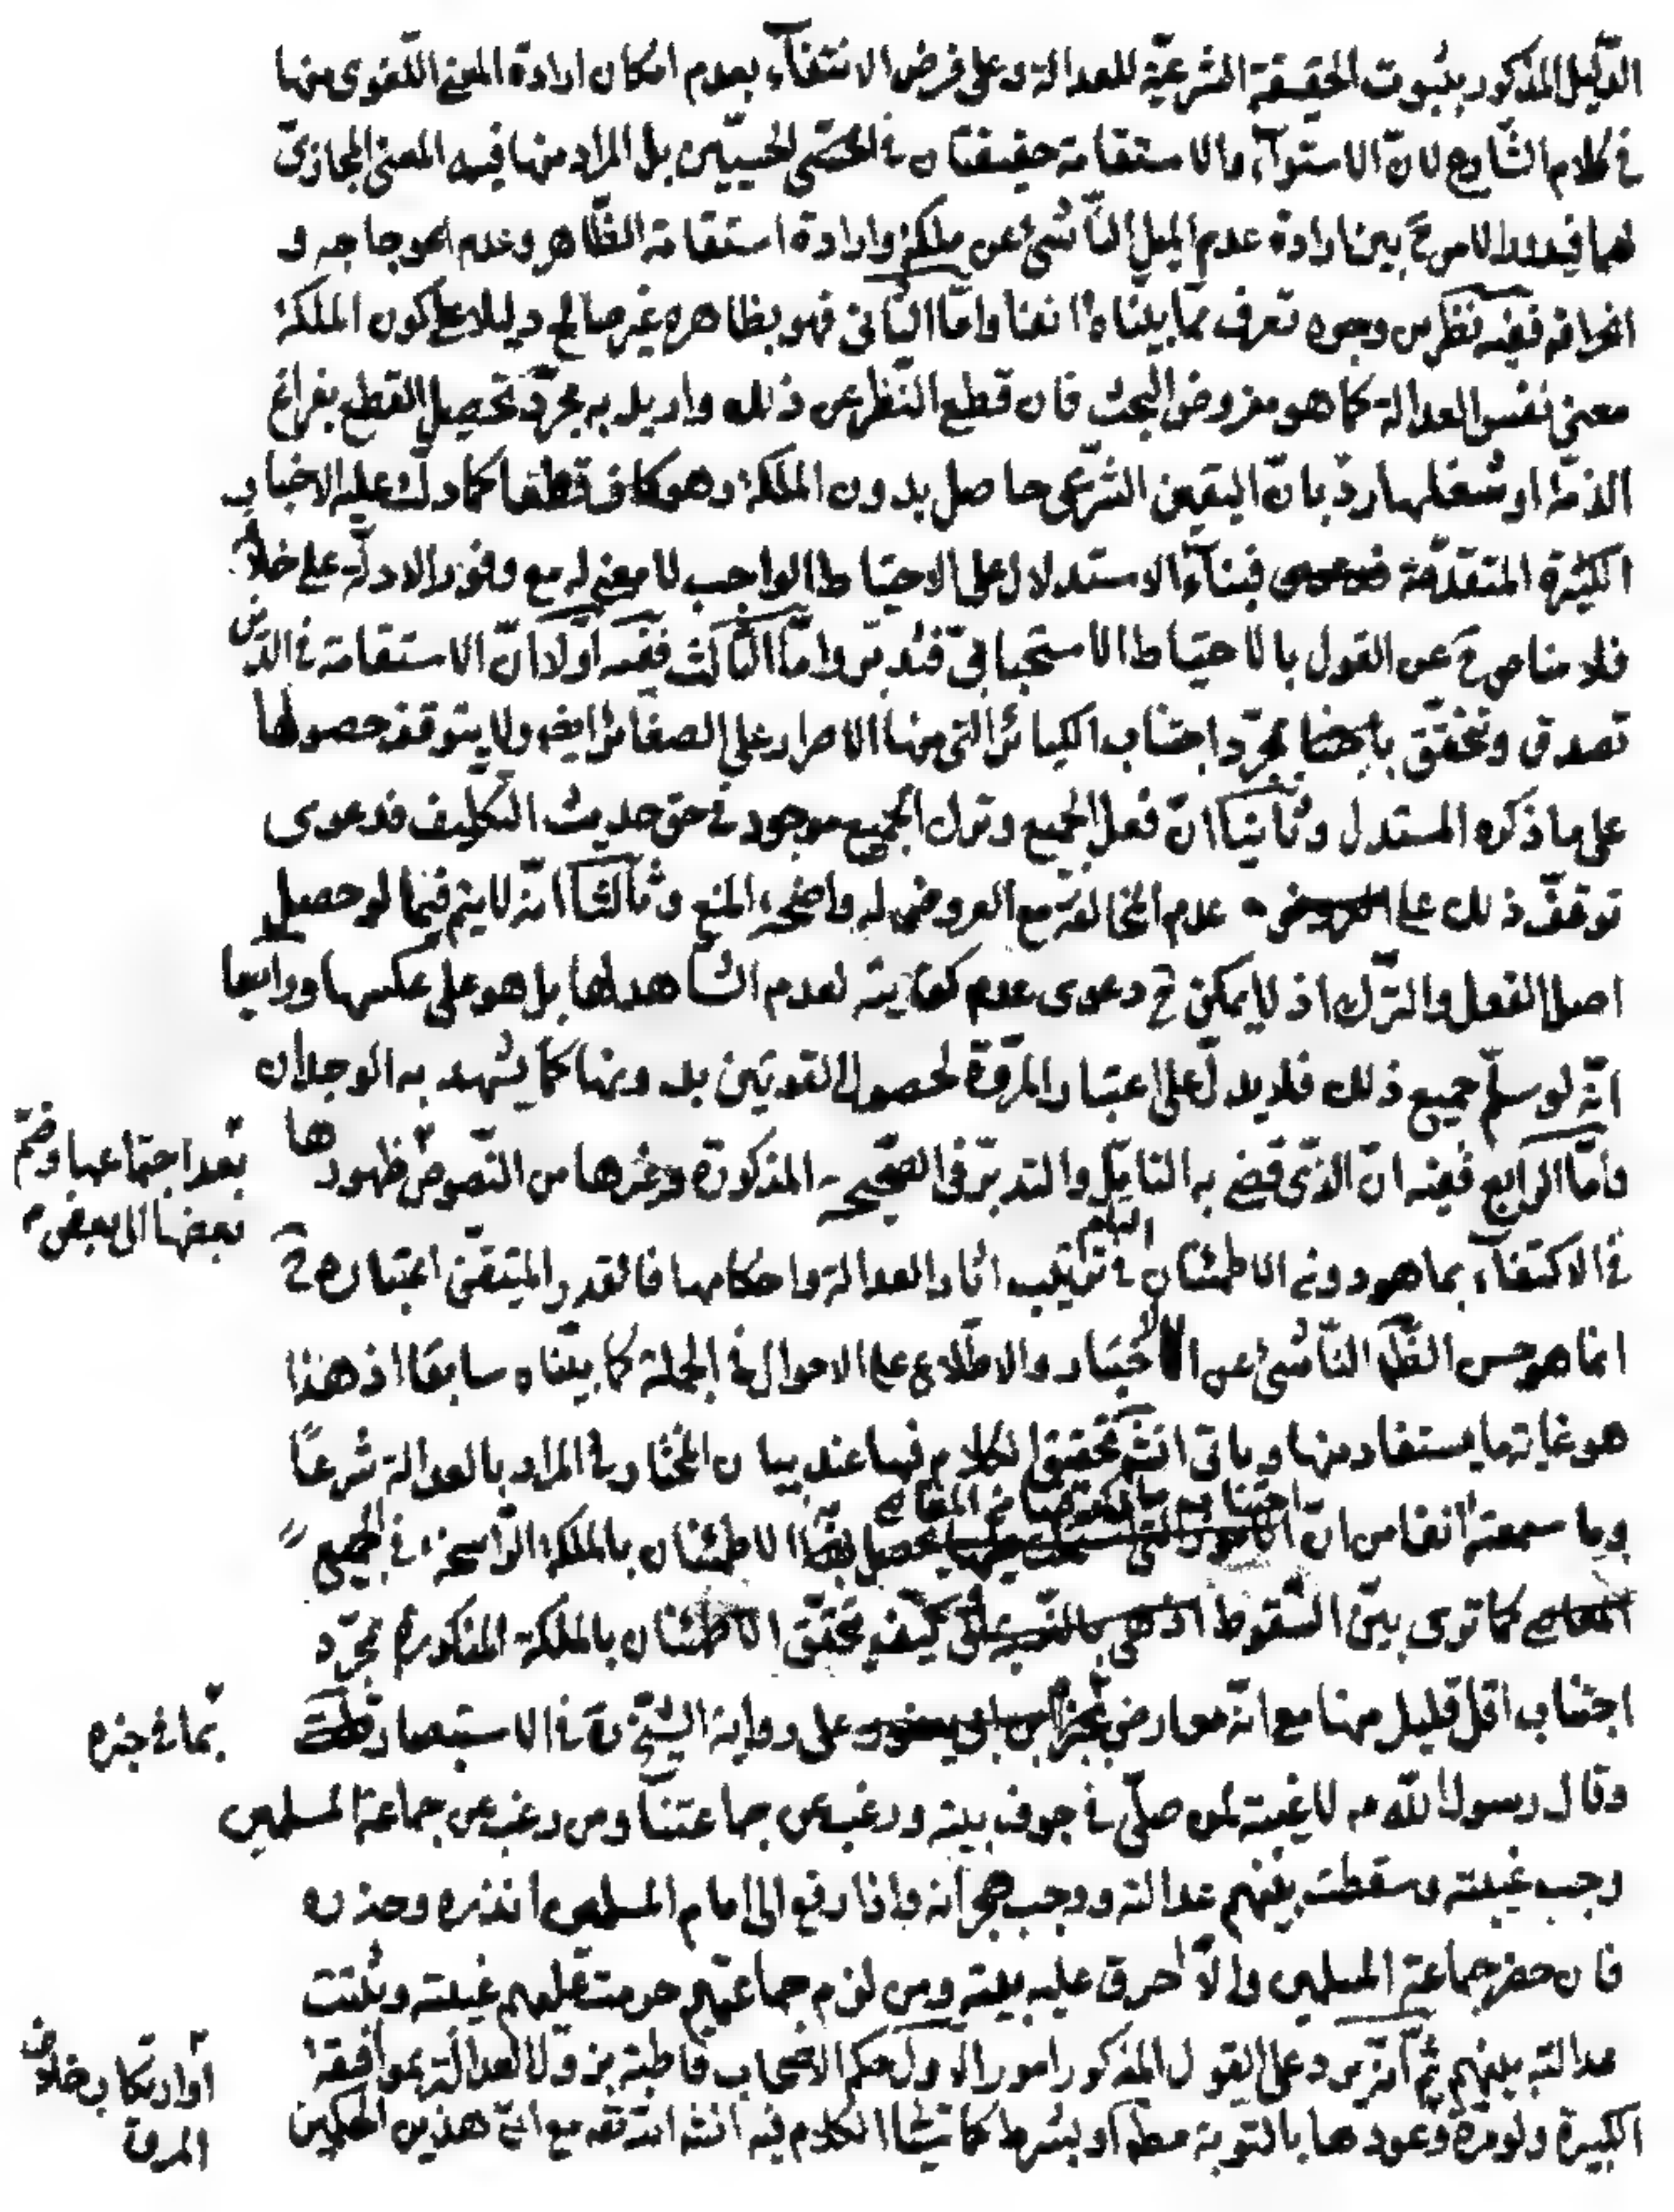 الدّليل المذكور بثبوت الحقيقة الشرعيّة للعدالة وعلى فرض الانتفآء بعدم امكان ارادة المعنى اللّغوى منها
فى كلام الشّارع لانّ الاستوآء والاستقامة حقيقتان فى الحسيّين بل المراد منها فيه المعنى المجازىّ
لهما فيدور الامر ح بين ارادة عدم الميل النّاشئ عن ملكة وارادة استقامة الظّاهر وعدم اعوجاجه و
انحرافه ففيه نظر من وجوه تعرف ممّا بيّنّاه انفا وامّا الثّانى فهو بظاهره غير صالح دليلا على كون الملكة
معنى نفس العدالة كما هو مفروض البحث فان قطع النّظر عن ذلك واريد به مجرّد تحصيل القطع بفراغ
الذمّة او شغلها ردّ بانّ اليقين الشّرعى حاصل بدون الملكة وهو كاف قطعا كما دلّت عليه الاخبار
الكثيرة المتقدّمة فبنآء الاستدلال على الاحتياط الواجب لا معنى له مع وفور الادلّة على خلافه
فلا مناص ح عن القول بالاحتياط الاستحبابىّ فتدبّر وامّا الثّالث ففيه اوّلا انّ الاستقامة فى الدّين
تصدق وتحقّق بمجرّد اجتناب الكبائر الّتى منها الاصرار على الصغائر ايضا ولا يتوقف حصولها
على ما ذكره المستدل وثانيا انّ فعل الجميع وترك الجميع موجود فى حق حديث التكليف فدعوى
توقّف ذلك على عدم المخالفة مع العروض له واضحة المنع وثالثا انّه لا يتم فيما لو حصل
اصل الفعل والترّك اذ لا يمكن ح دعوى عدم كفايته لعدم الشّاهد لها بل هو على عكسها ورابعا
انّه لو سلّم جميع ذلك فلا يدلّ على اعتبار المروّة لحصول القوتين بدونها كما يشهد به الوجدان
وامّا الرابع ففيه انّ الذّى قضى به التامّل والتدبّر فى الصّحيحة المذكورة وغيرها من النّصوص ظهورها
بعد اجتماعها وضمّ
بعضها الى بعض
فى الاكتفآء بما هو دونه الاطمئنان التام فى ترتيب اثار العدالة واحكامها فالقدر المتيقّن اعتباره ح
انما هو حسن الظّاهر النّاشئ عن الاختبار والاطّلاع على الاحوال فى الجملة كما بيّنّاه سابقا اذ هذا
هو غاية ما يستفاد منها وياتى انش تحقيق الكلام فيها عند بيان المختار فى المراد بالعدالة شرعًا
وما سمعته انفا من انّ اجتناب الاطمئنان بالملكة الرّاسخة فى الجميع
كما ترى بيّن السّقوط كيف تحقّق الاطمئنان بالملكة المذكورة بمجرّد
اجتناب اقل قليل منها مع انّه معارض على رواية الشّيخ ره فى الاستبصار
بما فى خبره
وقال رسول الله ص لا غيبة لمن صلّى فى جوف بيته ورغب عن جماعتنا ومن رغب عن جماعة المسلمين
وجب غيبته وسقطت بينهم عدالته ووجب هجرانه واذا رفع الى امام المسلمين انذره وحذره
فان حضر جماعة المسلمين والّا احرق عليه بيته ومن لزم جماعتهم حرمت عليهم غيبته وثبتت
عدالته بينهم ثم انّه يرد على القول المذكور امور الاول حكم الاصحاب قاطبة بزوال العدالة بمواقعة
او ارتكاب خلاف
المروة
الكبيرة ولو مرة وعودها بالتوبة مط او بشرط كما سيجئ الكلام فيه انشا الله تعه مع انّ هذين الحكمين